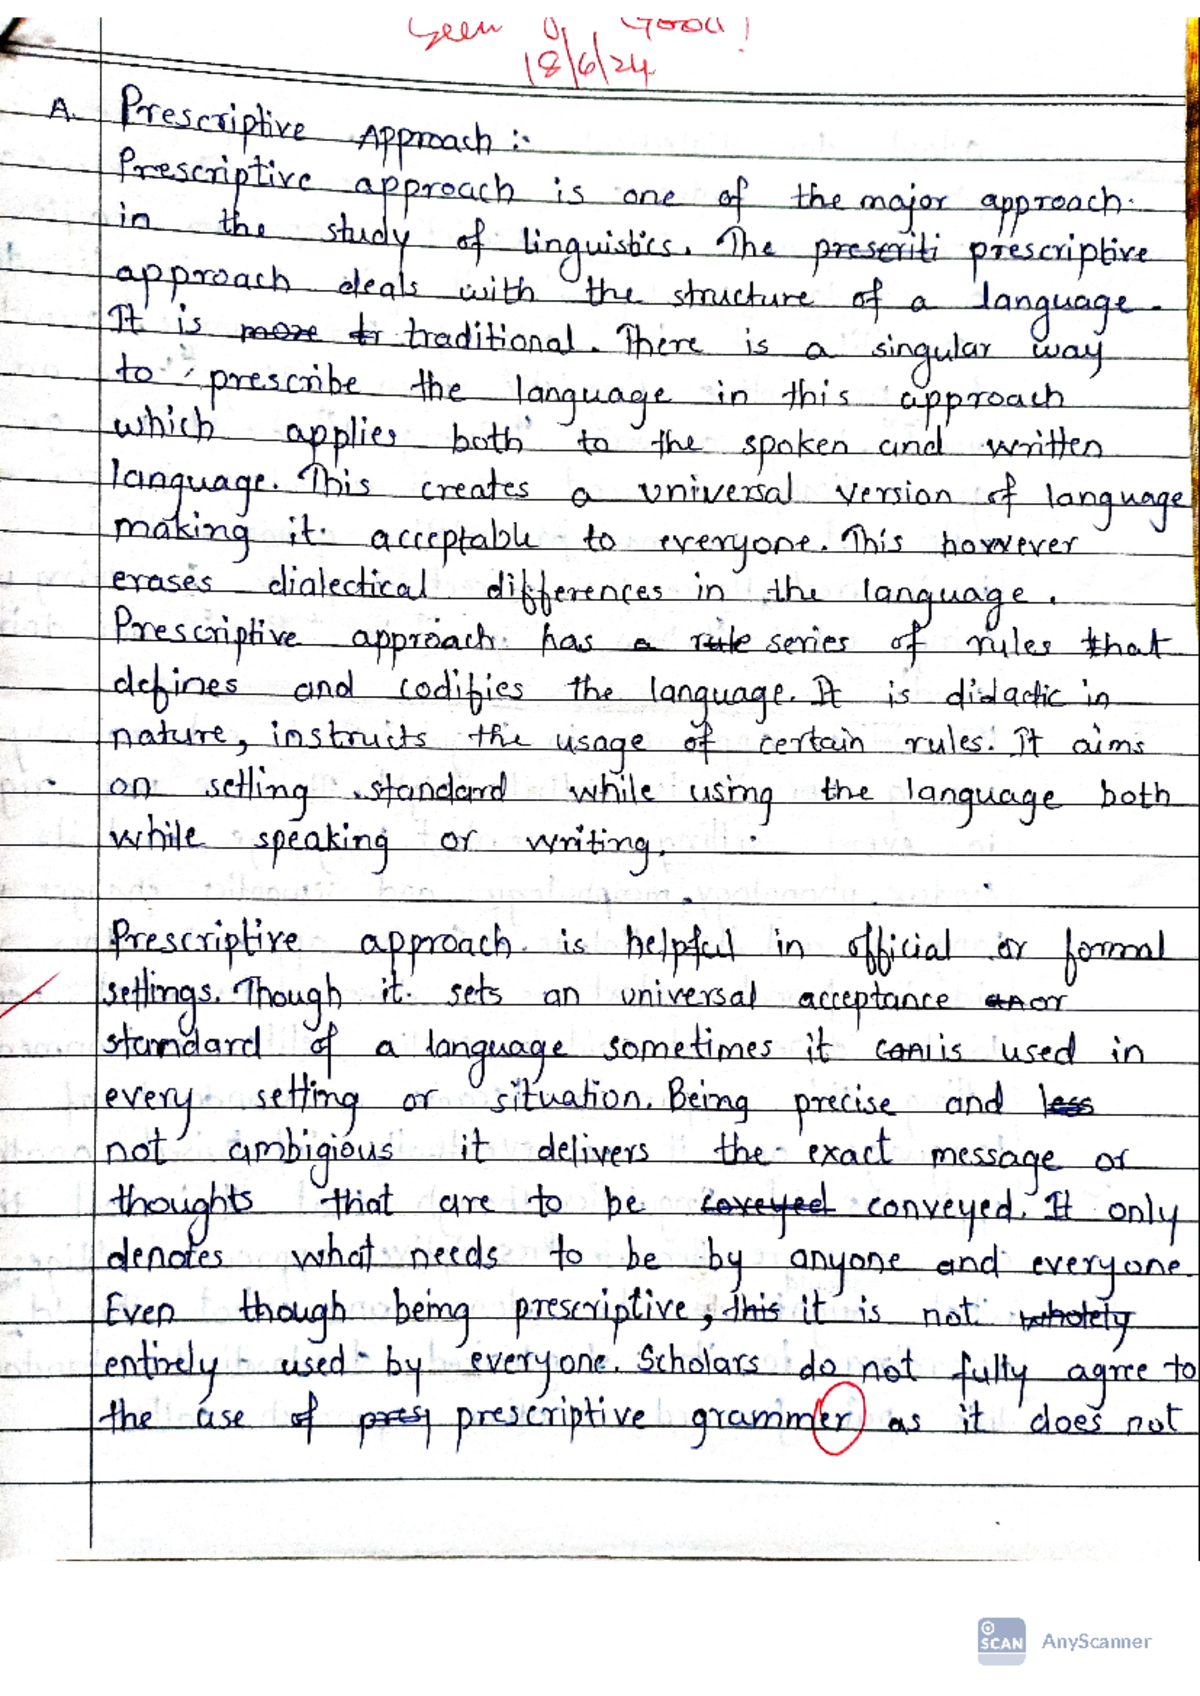 Seen Good!
18/6/24
A. Prescriptive Approach :-
Prescriptive approach is one of the major approach
in the study of linguistics. The prescriti prescriptive
approach deals with the structure of a language.
It is more tr traditional. There is a singular way
to prescribe the language in this approach
which applies both to the spoken and written
language. This creates a universal version of language
making it acceptable to everyone. This however
erases dialectical differences in the language.
Prescriptive approach has a rule series of rules that
defines and codifies the language. It is didactic in
nature, instructs the usage of certain rules. It aims
on setting standard while using the language both
while speaking or writing.
Prescriptive approach is helpful in official or formal
settings. Though it sets an universal acceptance an or
standard of a language sometimes it can is used in
every setting or situation. Being precise and less
not ambigious it delivers the exact message or
thoughts that are to be coveyed conveyed. It only
denotes what needs to be by anyone and everyone.
Even though being prescriptive, this it is not wholely
entirely used by everyone. Scholars do not fully agree to
the use of presq prescriptive grammer as it does not
SCAN AnyScanner